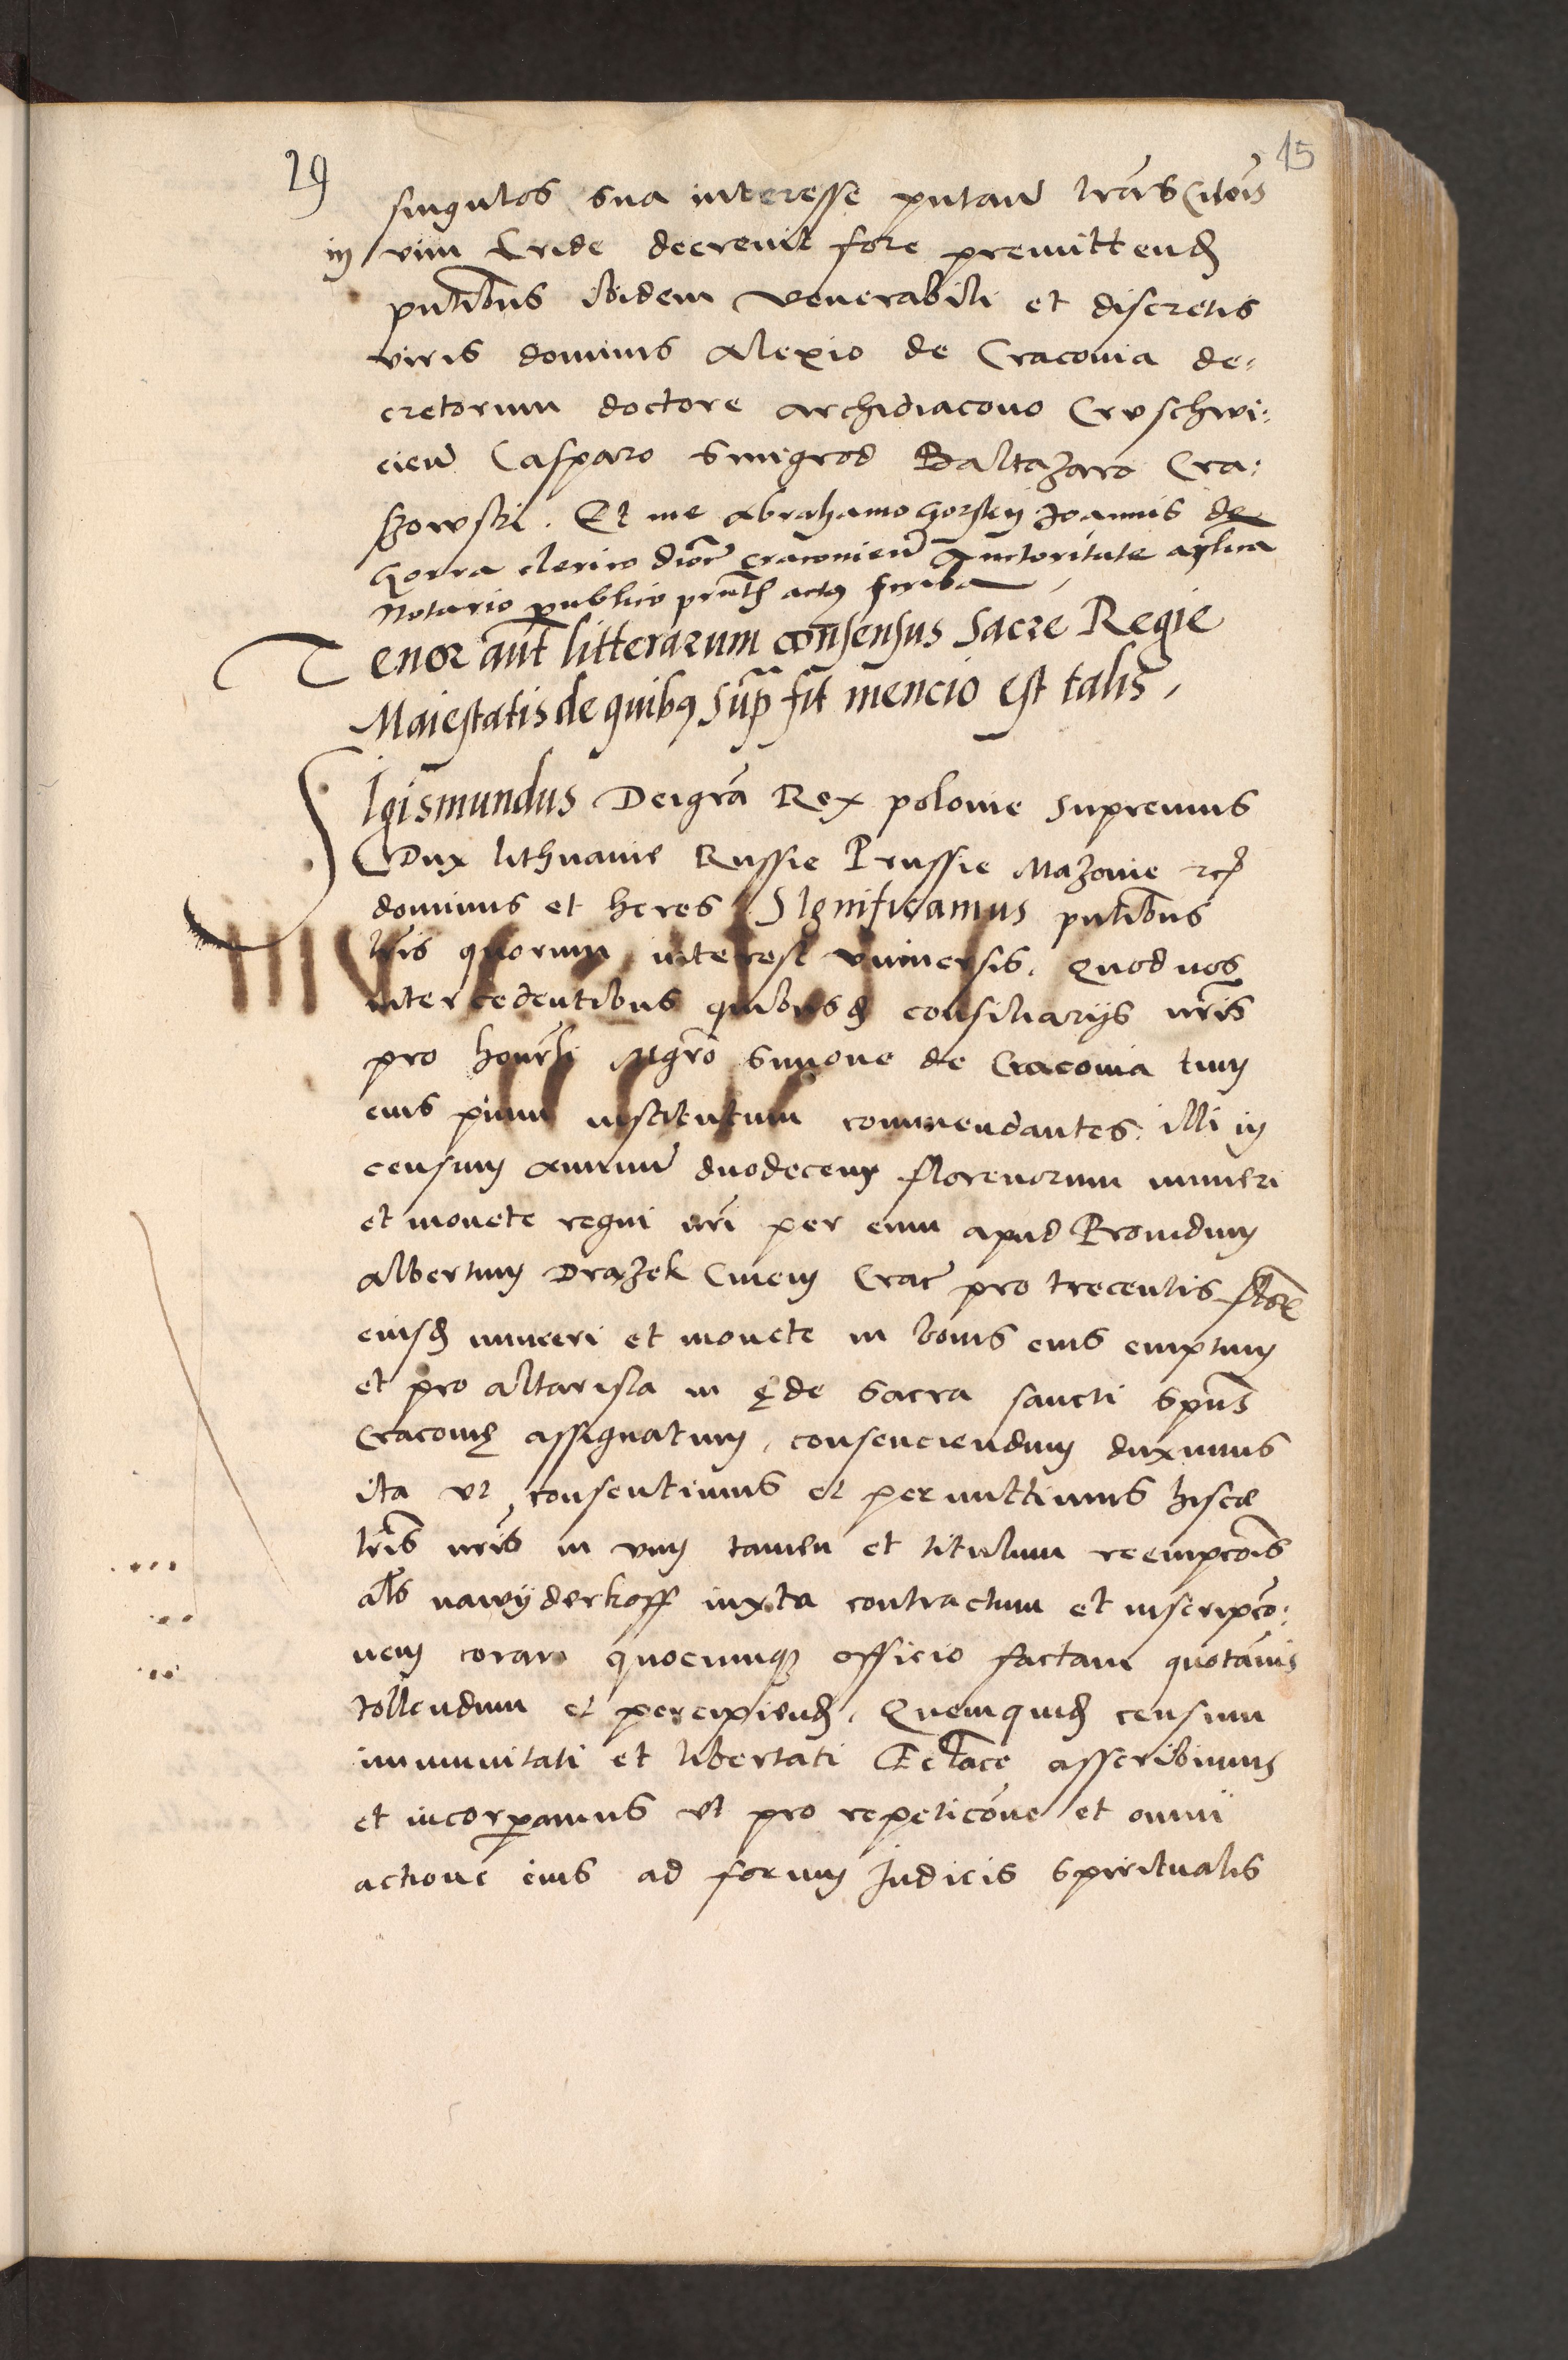 29
15
singulos sua interesse putañ lr̃as Citõis
in vim Eride decrevit fore premittend
pntibus ibidem venerabili et discretis
viris dominis Alexio de Cracovia de=
cretorum doctore Archidiacono Cruschwi:
cieñ Casparo Smigrod Baltazaro Cra:
szowski. Et me Abrahamo Gorskij Joannis de
Gorra clerico dioc̃ Cracovieñ Auctoritate aplica
Notario publico pñtis actus scriba
Tenor aũt litterarum consensus Sacre Regie
Maiestatis de quibus sup̃ fit mencio est talis,
Sigismundus Dei grã Rex polonie Supremus
Dux lithuanie Russie Prussie Mazovie etc
dominus et heres Significamus pntibus
lr̃is quorum interest universis. Quod nos
intercedentibus quibusd consiliarijs nr̃is
pro honrli Mgrõ Simone de Cracovia tum
eius pium institutum commendantes: illi in
censum annuũ duodecem florenorum numeri
et monete regni nrĩ per eum apud Providum
Albertum Drazek Civem Crac̃ pro trecentis flor̃
eiusd numeri et monete in bonis eius emptum
et pro altarista in ęde sacra sancti Spũs
Cracovię assignatum, consenciendum duximus
ita ut consentimus et permittimus hisce
lr̃is nr̃is in vim tamen et titulum reempcõis
als nawyderkoff iuxta contractum et inscripcõ:
nem coram quocumque officio factam quotannis
tollendum et percipiend. Quemquid censum
immunitati et libertati Ecclace asscribimus
et incorporamus ut pro repeticõne et omni
actione eius ad forum Judicis spiritualis